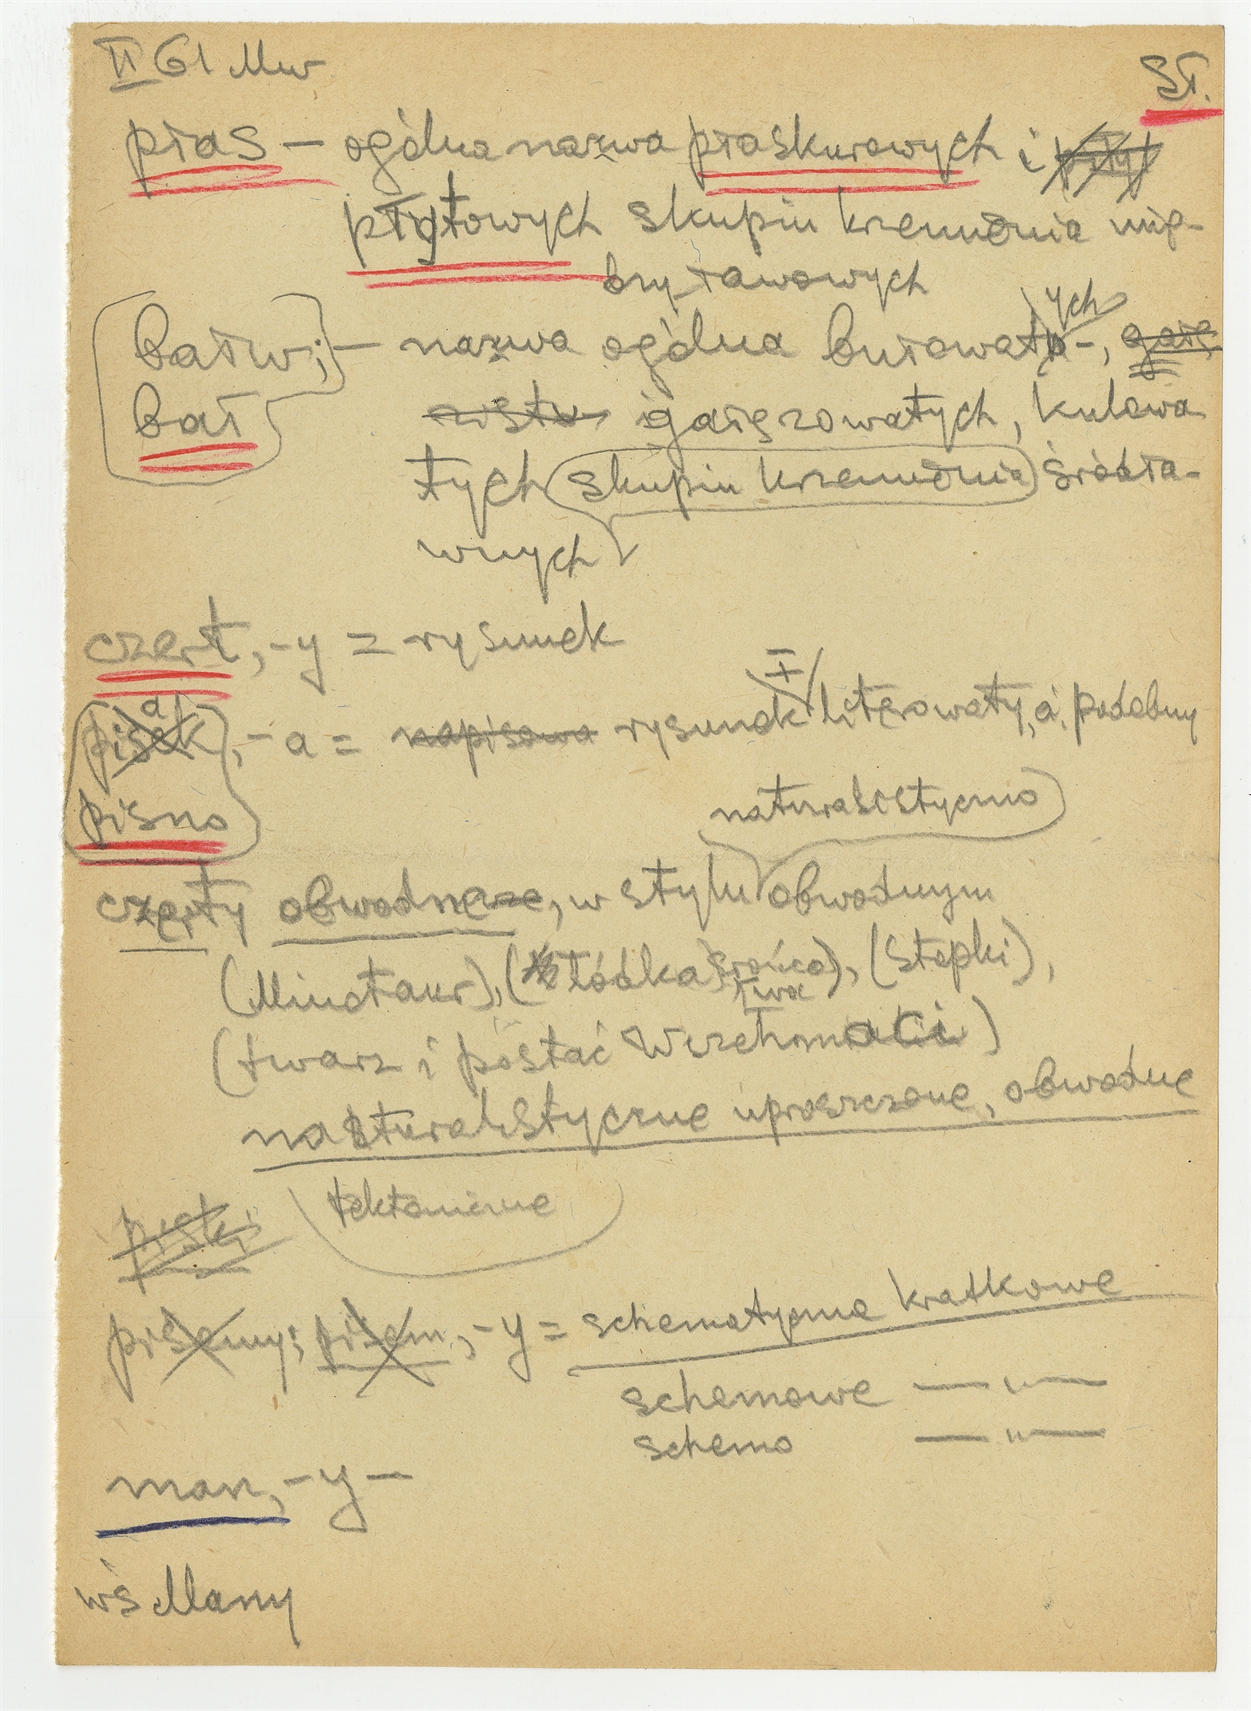 VI 61 Mw
St.
płas – ogólna nazwa płaskurowych i
płytowych skupin krzemienia mię-
bryławowych
bałw; – nazwa ogólna bułowatych,
bał gałęzowatych, kulowa
tych skupin krzemienia śródła-
wnych
czert, -y = rysunek
I
pisak, -a = napisowa rysunek literowaty, a, podobny
pismo
naturalistyczno
czerty obwodne, w stylu obwodnym
(Minotaur), (łódka słońca), (Stopki),
(twarz i postać Wszechmoci)
naturalistyczne uproszczone, obwodne
tektoniczne
piski
pisemy; pisem, -y = schematyczne kratkowe
schemowe — " —
schemo — " —
man, -y –
wś Many